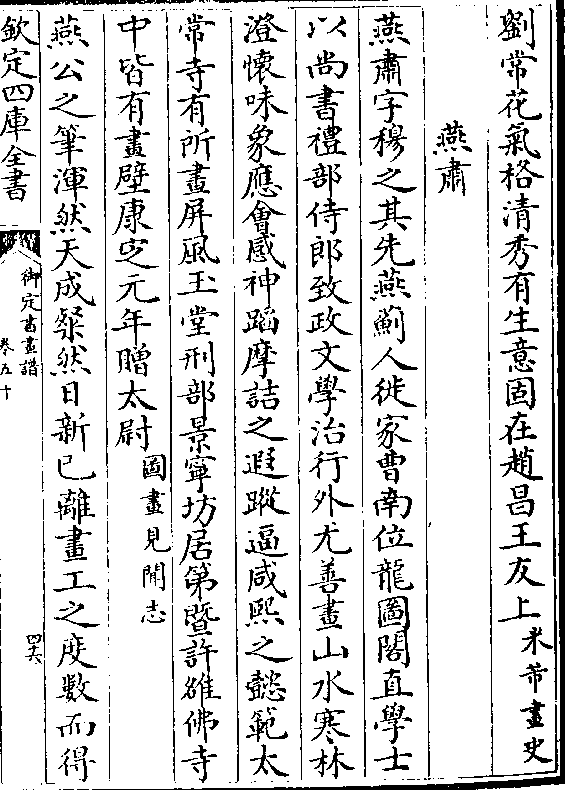 劉常花氣格清秀有生意固在趙昌王友上米芾畫史
燕肅
燕肅字穆之其先燕薊人徙家曹南位龍圖閣直學士
以尚書禮部侍郎致政文學治行外尤善畫山水寒林
澄懷味象應會感神蹈摩詰之遐蹤逼咸熙之懿範太
常寺有所畫屏風玉堂刑部景寧坊居第暨許雒佛寺
中皆有畫壁康定元年贈太尉圖畫見聞志
燕公之筆渾然天成粲然日新已離畫工之度數而得
欽定四庫全書
御定書畫譜
卷五十
四六